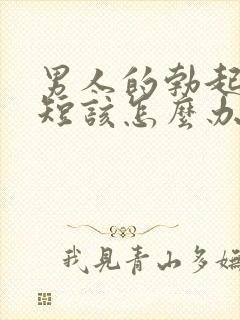 男人的勃起
短該怎麼办
我見青山多嫵